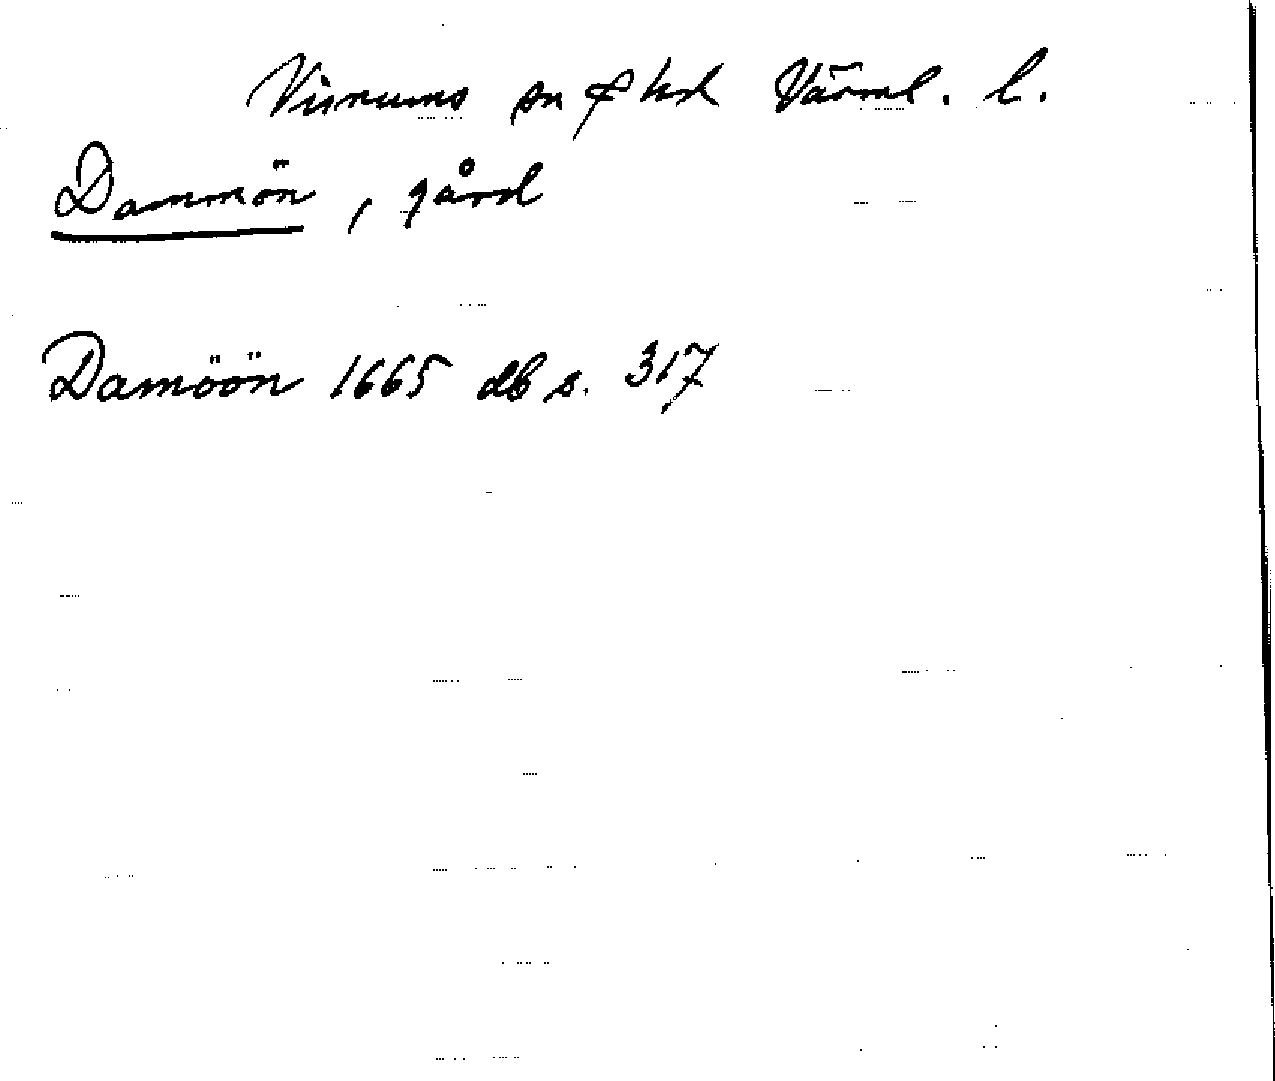 Visnums sn o hd Värml. l.
Dammön, gård
Damöön 1665 db s. 317